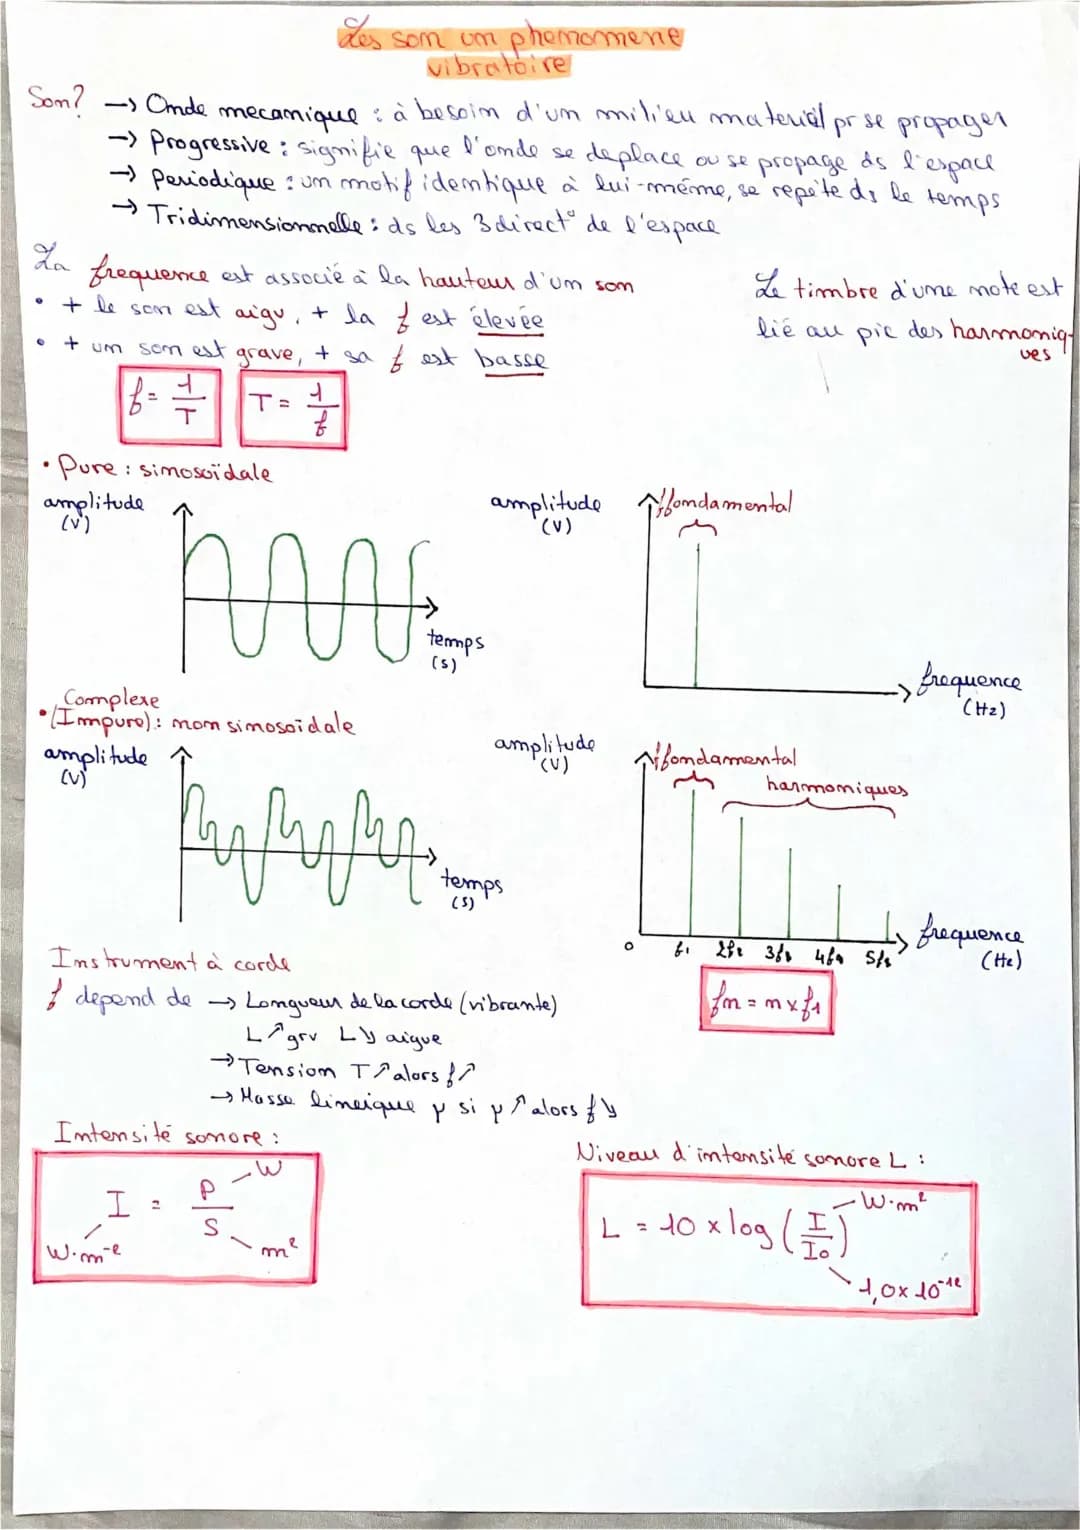 Les son un phenomene
vibratoire
Son? → Onde mecanique : à besoin d'un milieu materiel pr se propager
→ Progressive : signifie que l'onde se deplace ou se propage ds l'espace
→ Periodique : un motif identique à lui-même, se repète ds le temps
→ Tridimensionnelle : ds les 3 direct° de l'espace
La frequence est associé à la hauteur d'un son
• + le son est aigu, + la f est élevée
• + un son est grave, + sa f est basse
Le timbre d'une note est
lié au pic des harmoniq-
ues
f = 1/T
T = 1/f
• Pure : sinosoïdale
amplitude
(V)
temps
(s)
amplitude
(V)
fondamental
frequence
(Hz)
Complexe
• (Impure) : non sinosoïdale
amplitude
(V)
temps
(s)
amplitude
(V)
fondamental
harmoniques
0 f1 2f1 3f1 4f1 5f1
frequence
(Hz)
fn = n x f1
Instrument à corde
f depend de → Longueur de la corde (vibrante)
L↗ grv L↘ aigue
→ Tension T↗ alors f↗
→ Masse lineique μ si μ↗ alors f↘
Intensité sonore :
I = P/S
W
W.m⁻²
m²
Niveau d'intensité sonore L :
L = 10 x log (I/I0)
W.m²
1,0x10⁻¹²